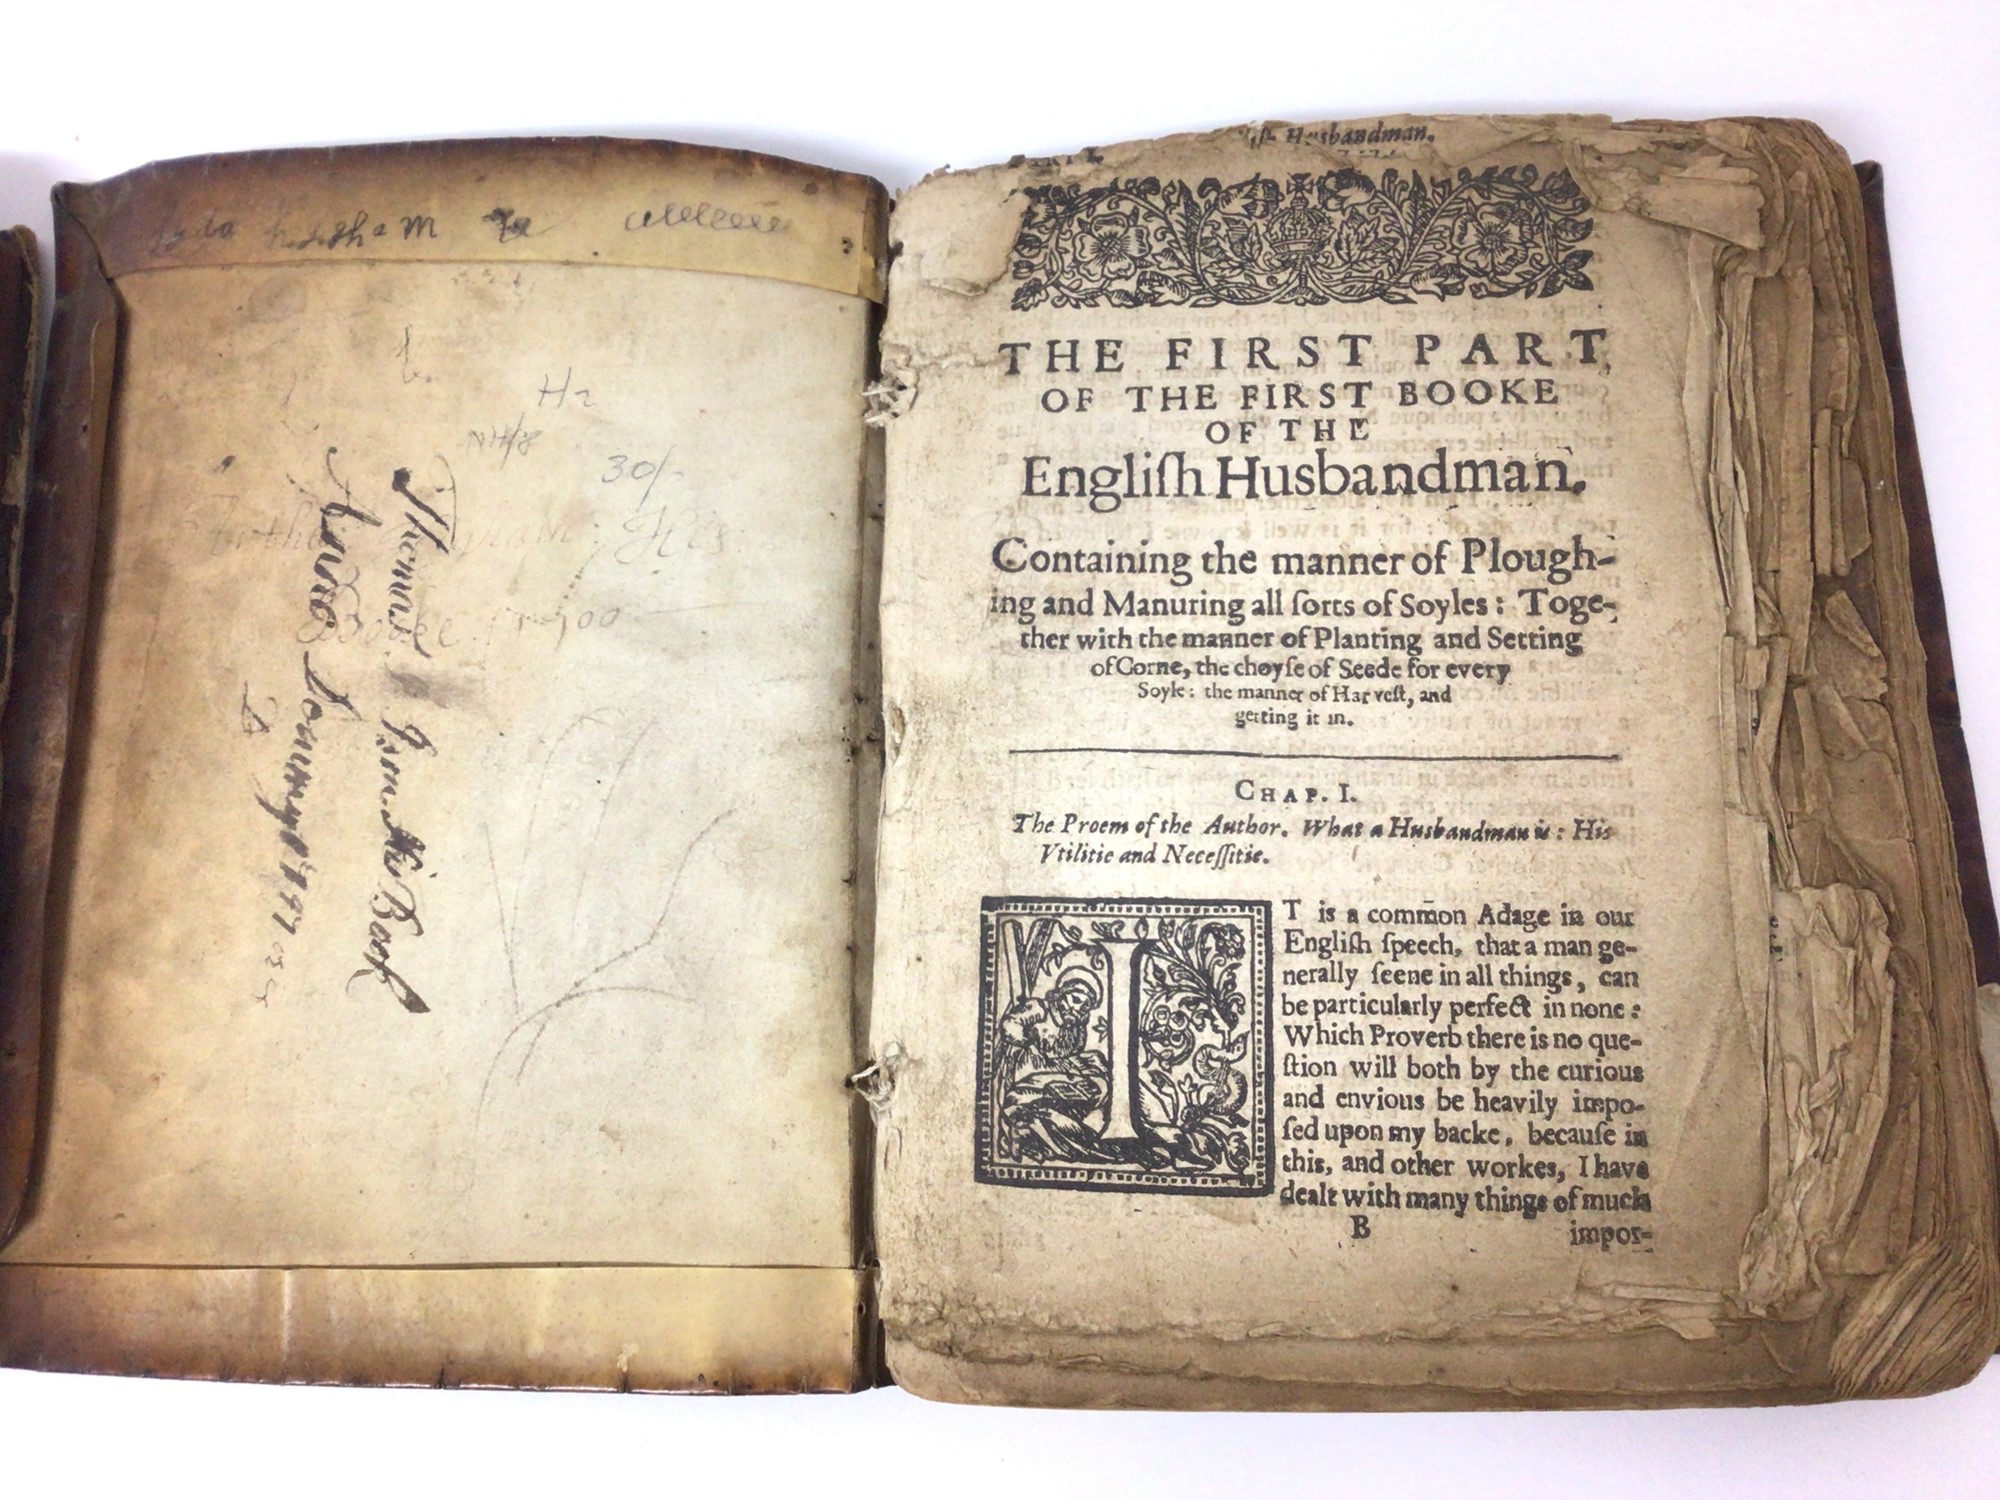 H2
30/-
His
Thomas
Book
Husbandman.
THE FIRST PART
OF THE FIRST BOOKE
OF THE
Engliſh Husbandman.
Containing the manner of Plough-
ing and Manuring all ſorts of Soyles: Toge-
ther with the manner of Planting and Setting
of Corne, the choyſe of Seede for every
Soyle: the manner of Harveſt, and
getting it in.
CHAP. I.
The Proem of the Author. What a Husbandman is: His
Vtilitie and Neceſſitie.
IT is a common Adage in our
Engliſh ſpeech, that a man ge-
nerally ſeene in all things, can
be particularly perfect in none:
Which Proverb there is no que-
ſtion will both by the curious
and envious be heavily impo-
ſed upon my backe, becauſe in
this, and other workes, I have
dealt with many things of much
B
impor-